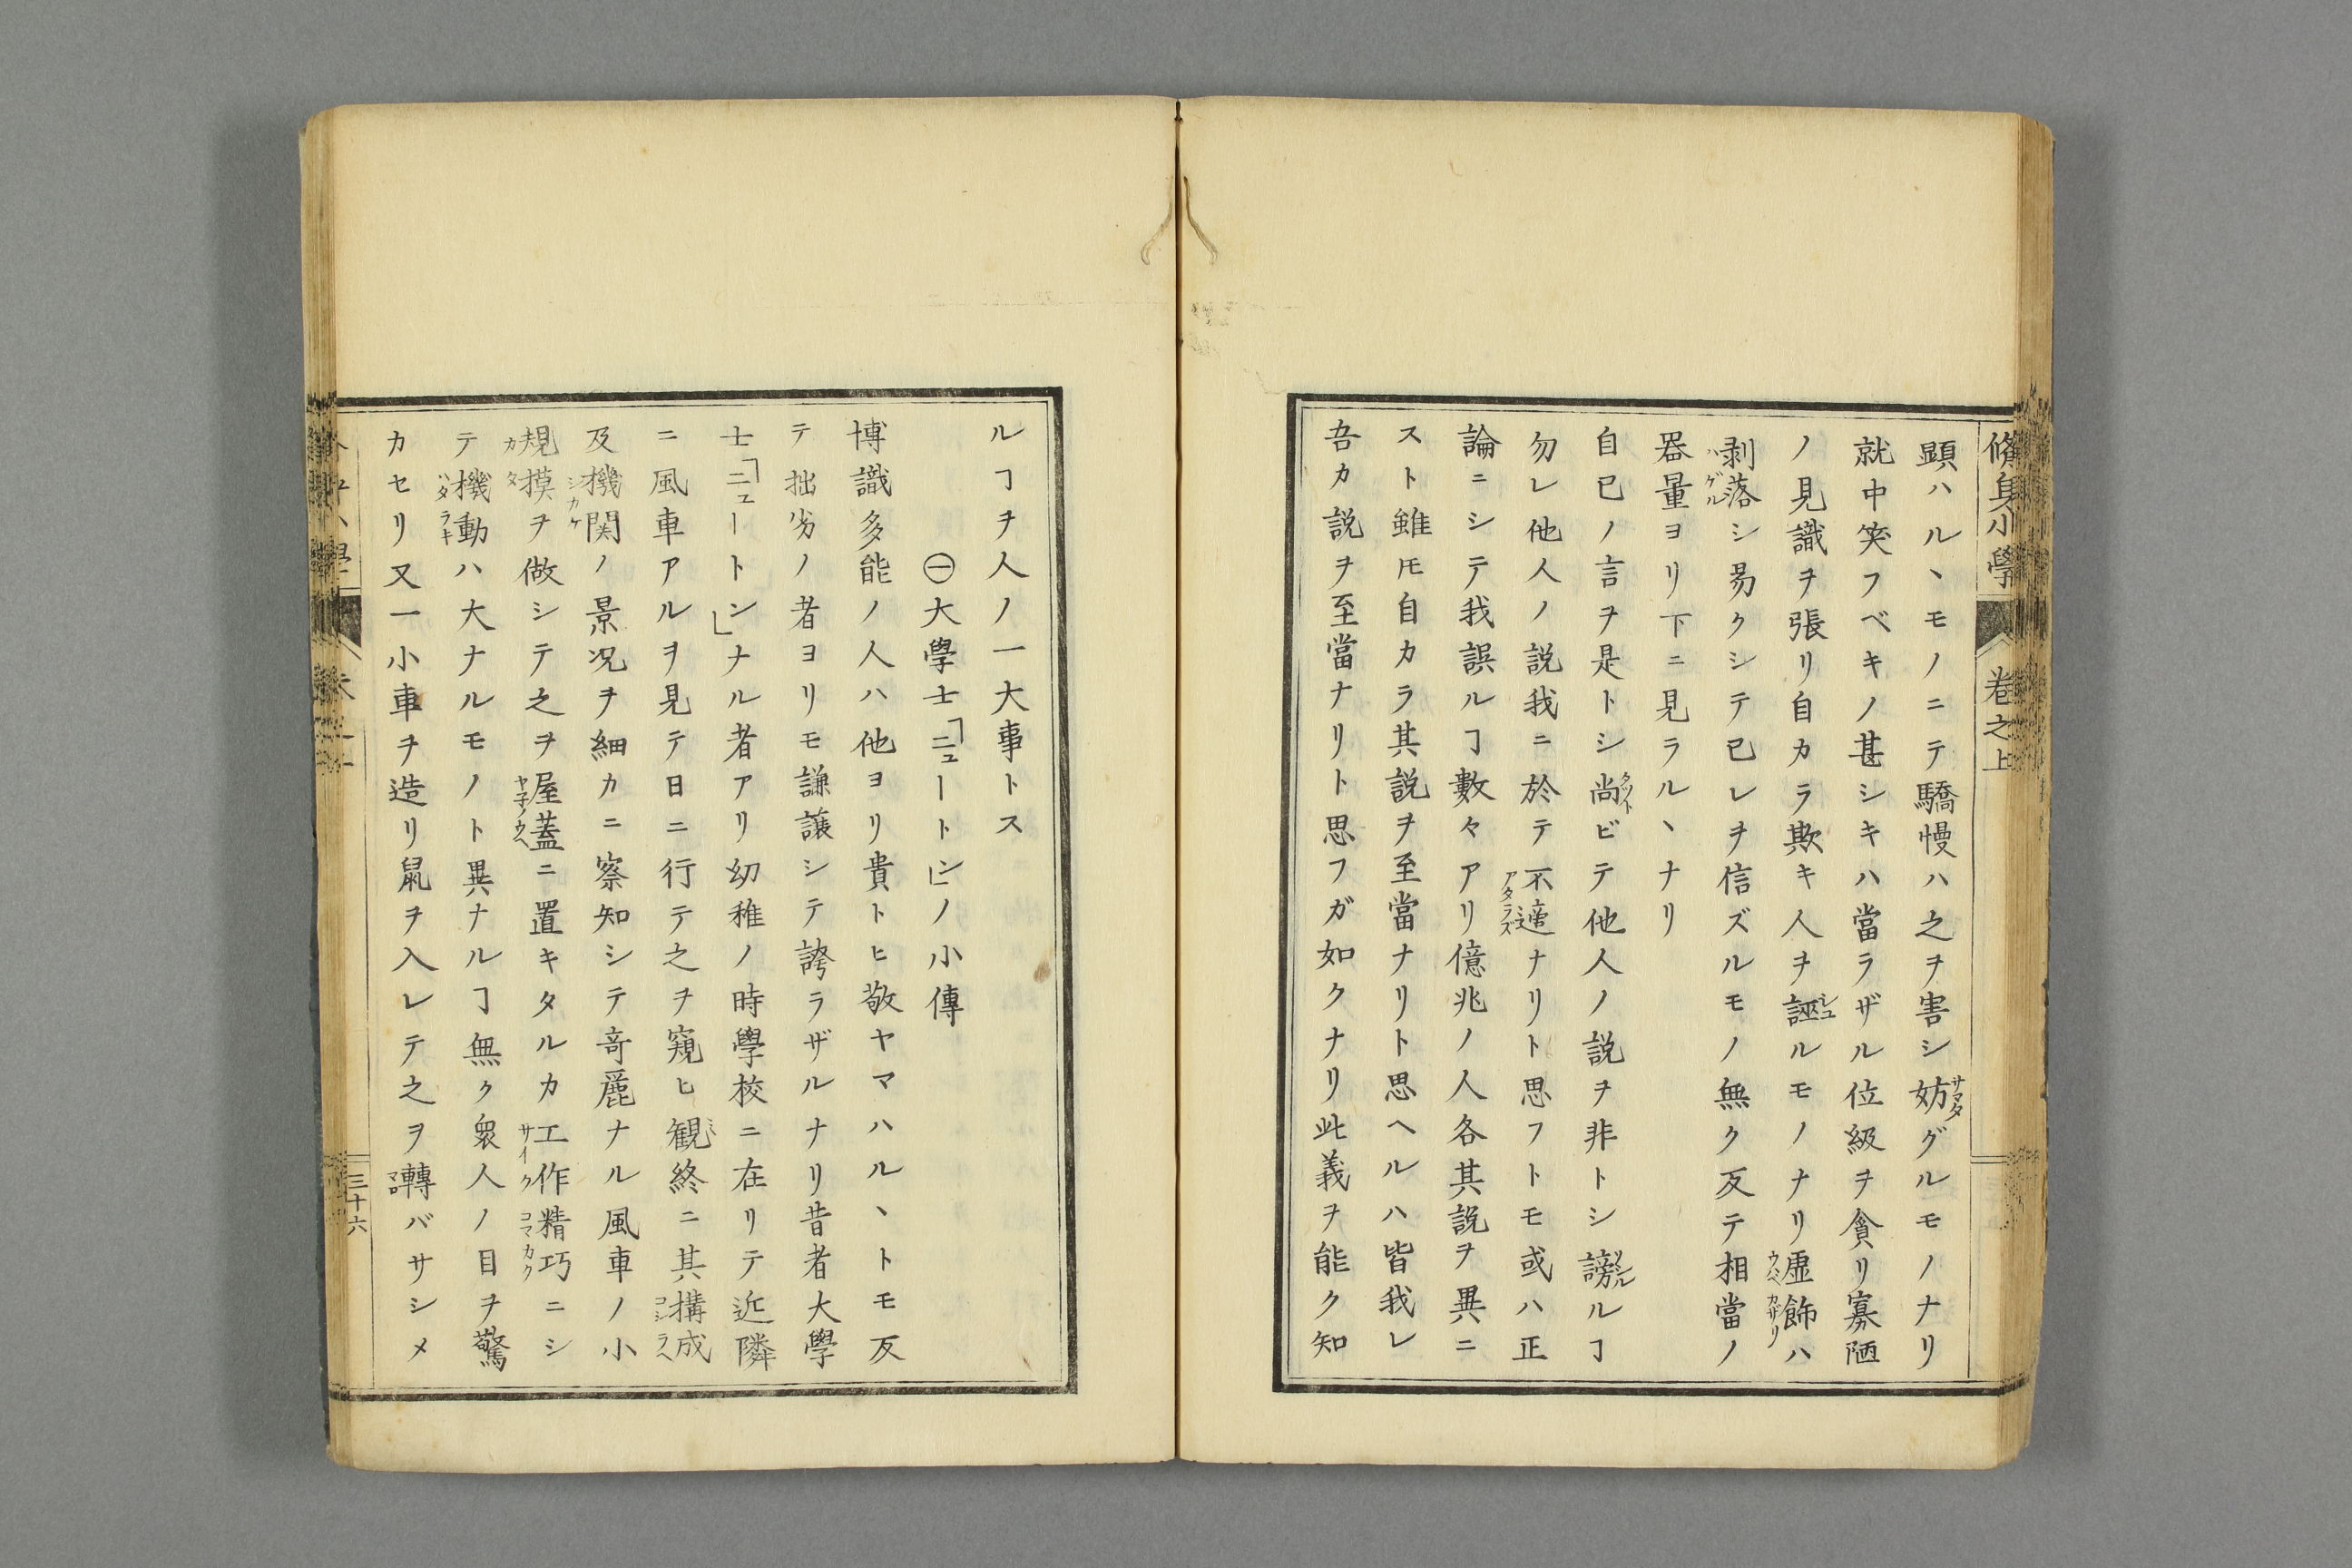 脩身小學 卷之上
顕ハル丶モノニテ驕慢ハ之ヲ害シ妨グルモノナリ
就中笑フベキノ甚シキハ當ラザル位級ヲ貪リ寡陋
ノ見識ヲ張リ自カラ欺キ人ヲ誣ルモノナリ虚飾ハ
剥落シ易クシテ已レヲ信ズルモノ無ク反テ相當ノ
器量ヨリ下ニ見ラル丶ナリ
自已ノ言ヲ是トシ尚ビテ他人ノ説ヲ非トシ謗ルヿ
勿レ他人ノ説我ニ於テ不適ナリト思フトモ或ハ正
論ニシテ我誤ルヿ數々アリ億兆ノ人各其説ヲ異ニ
スト雖𪜈自カラ其説ヲ至當ナリト思ヘルハ皆我レ
吾カ説ヲ至當ナリト思フガ如クナリ此義ヲ能ク知
ルヿヲ人ノ一大事トス
㊀大學士「ニュートン」ノ小傳
博識多能ノ人ハ他ヨリ貴トヒ敬ヤマハル丶トモ反
テ拙劣ノ者ヨリモ謙讓シテ誇ラザルナリ昔者大學
士「ニュートン」ナル者アリ幼稚ノ時學校ニ在リテ近隣
ニ風車アルヲ見テ日ニ行テ之ヲ窺ヒ観終ニ其構成
及機関ノ景况ヲ細カニ察知シテ竒麗ナル風車ノ小
規摸ヲ做シテ之ヲ屋蓋ニ置キタルカ工作精巧ニシ
テ機動ハ大ナルモノト異ナルヿ無ク衆人ノ目ヲ驚
カセリ又一小車ヲ造リ鼠ヲ入レテ之ヲ轉バサシメ
三十六